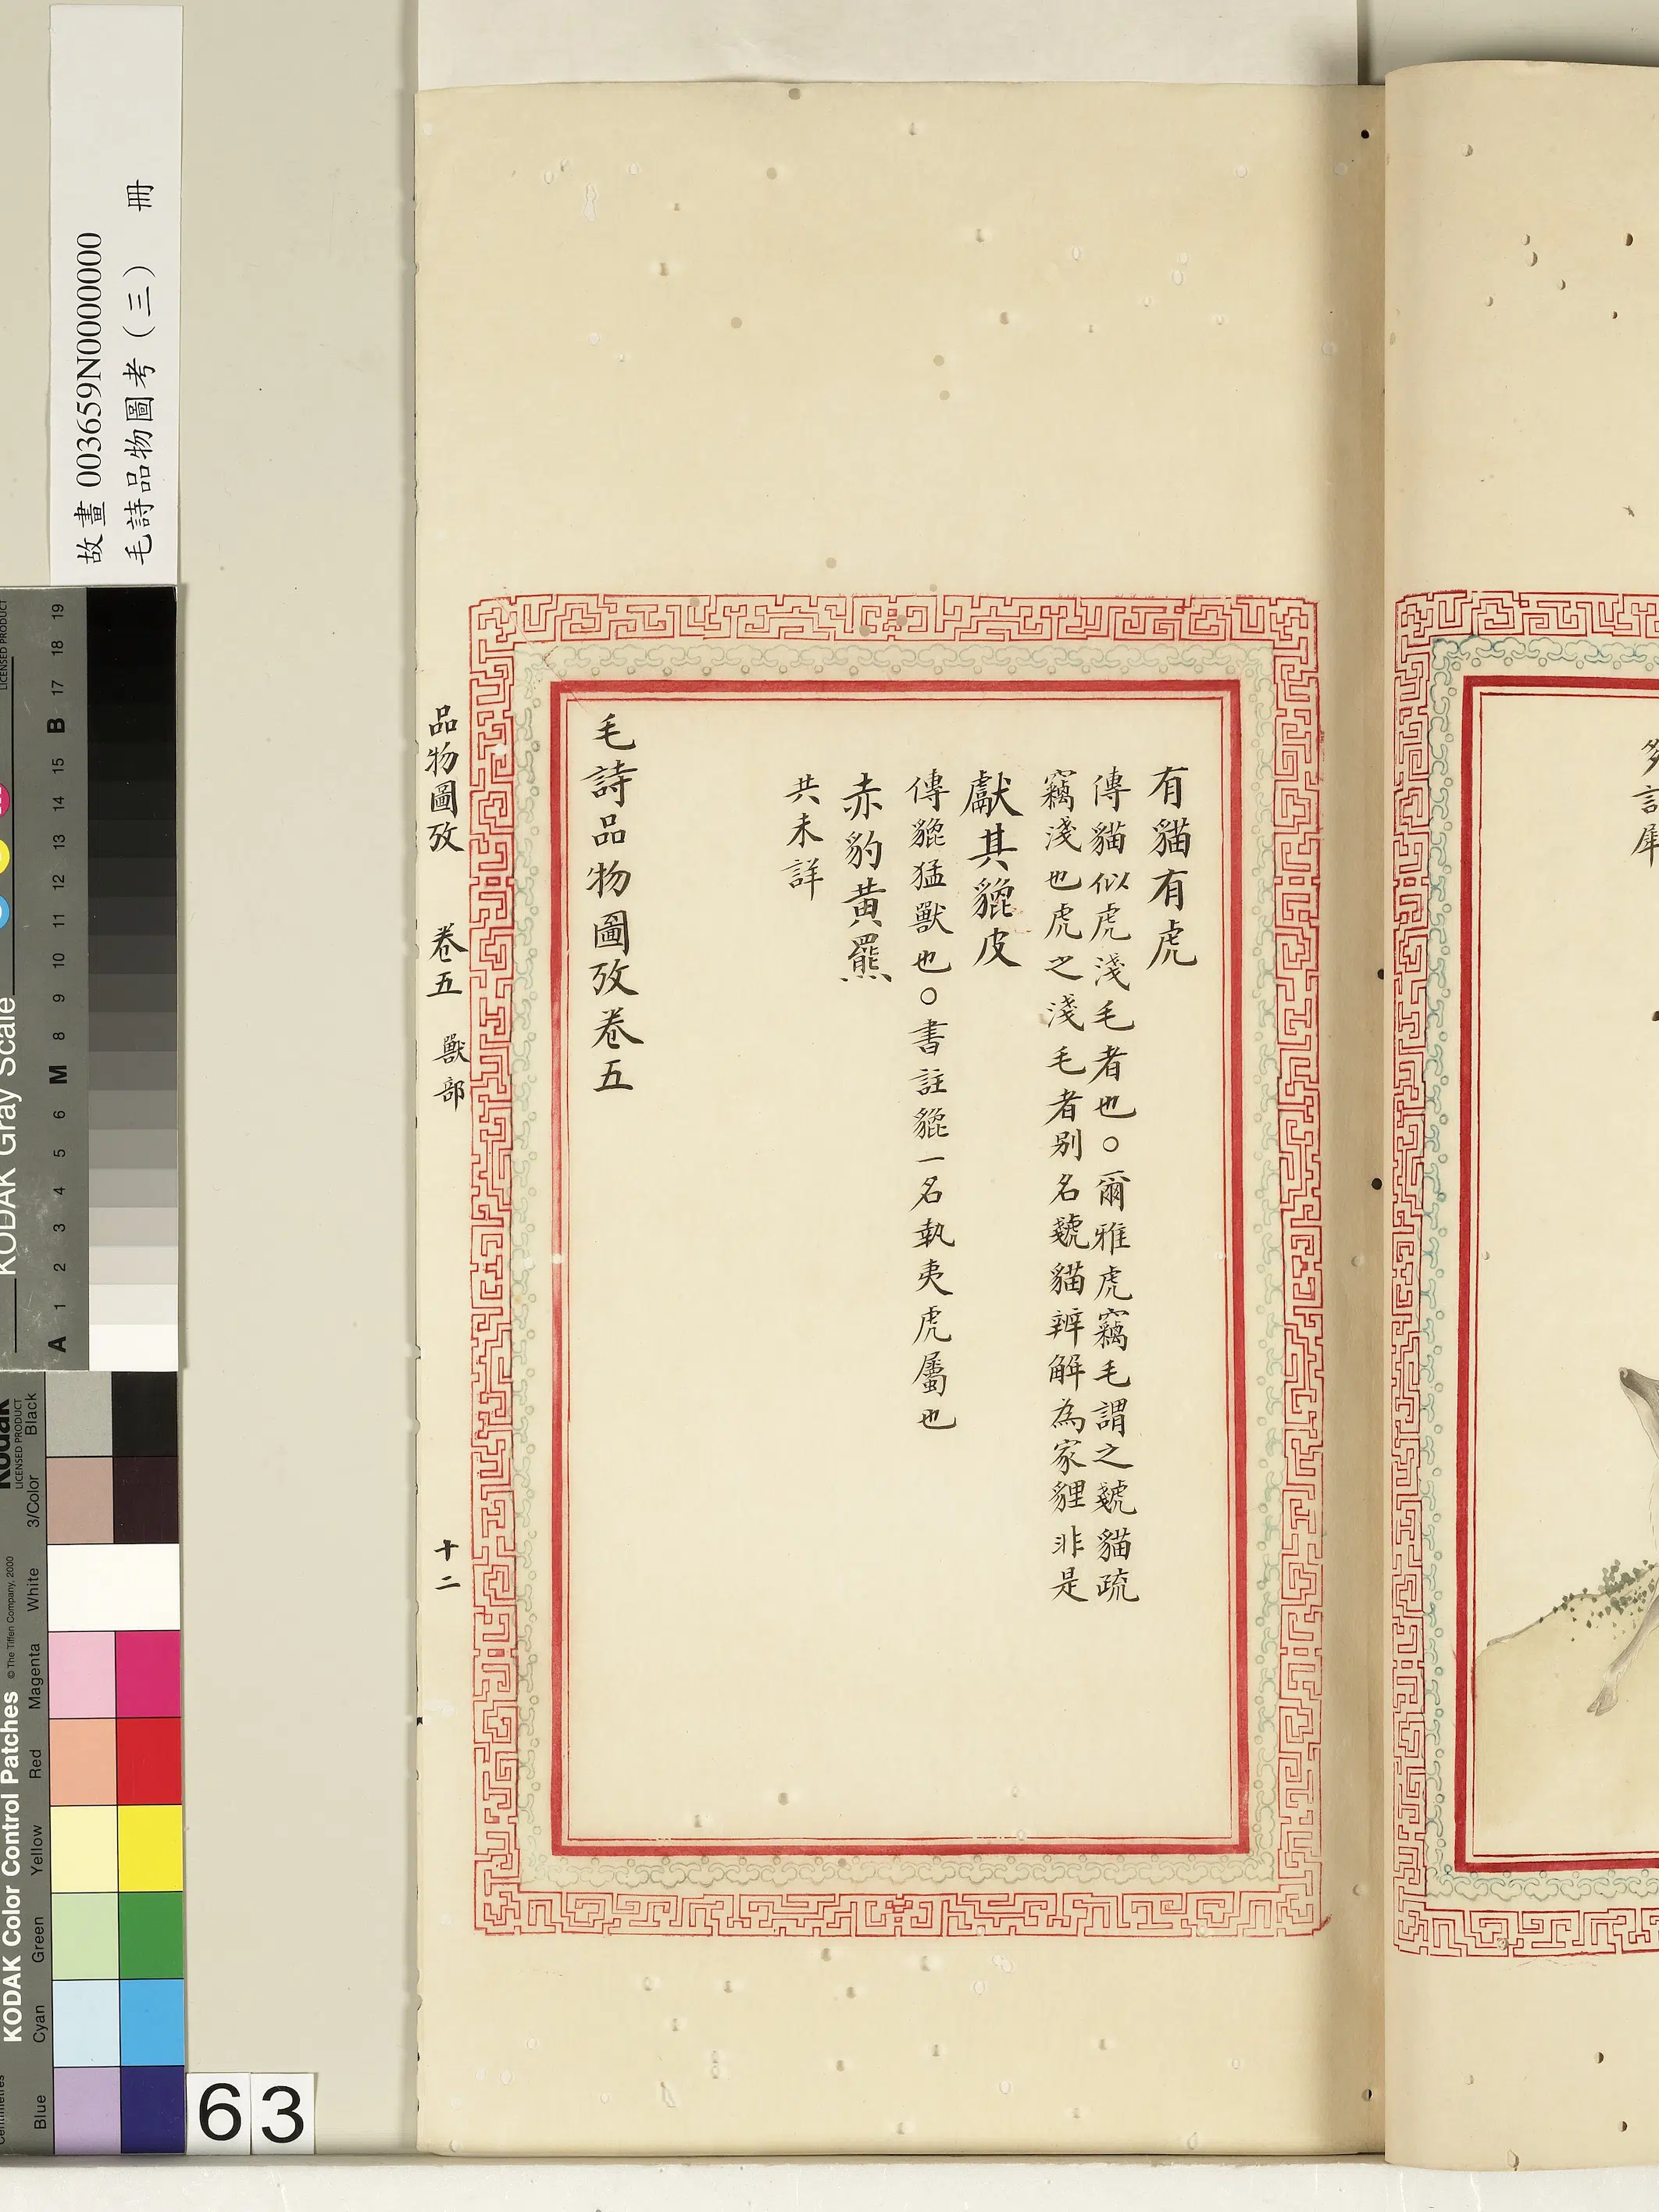 故畫 003659N000000000
毛詩品物圖考（三） 冊
有貓有虎
傳貓似虎淺毛者也○爾雅虎竊毛謂之虦貓疏
竊淺也虎之淺毛者别名虦貓辨解為家貍非是
獻其貔皮
傳貔猛獸也○書註貔一名執夷虎屬也
赤豹黃羆
共未詳
毛詩品物圖攷卷五
品物圖攷 卷五 獸部 十二
KODAK Gray Scale
LICENSED PRODUCT
A 1 2 3 4 5 6 M 8 9 10 11 12 13 14 15 B 17 18 19
KODAK Color Control Patches
© The Tiffen Company, 2000
Kodak
LICENSED PRODUCT
Blue Cyan Green Yellow Red Magenta White 3/Color Black
63